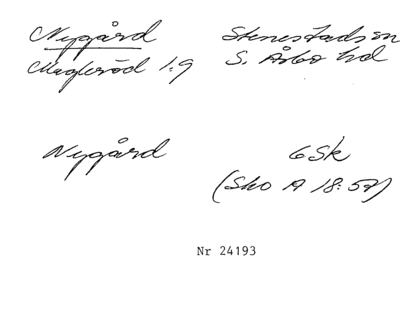 Nygård
Stenestads sn
Magleröd 1:9
S. Åsbo hd
Nygård
6 Sk
(Sko A 18:57)
Nr 24193